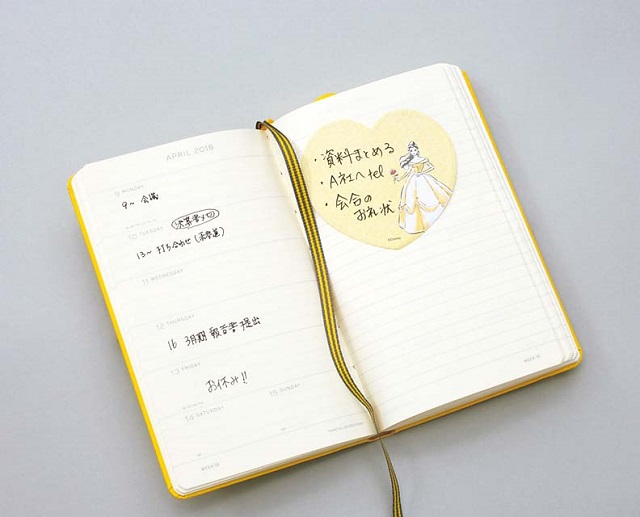 APRIL 2018
9 MONDAY
9〜 会議
10 TUESDAY
13〜 打ち合わせ
11 WEDNESDAY
12 THURSDAY
16 3月期 報告書 提出
13 FRIDAY
お休み!!
14 SATURDAY
15 SUNDAY
・資料まとめる
・A社へ tel
・会合の
お礼状